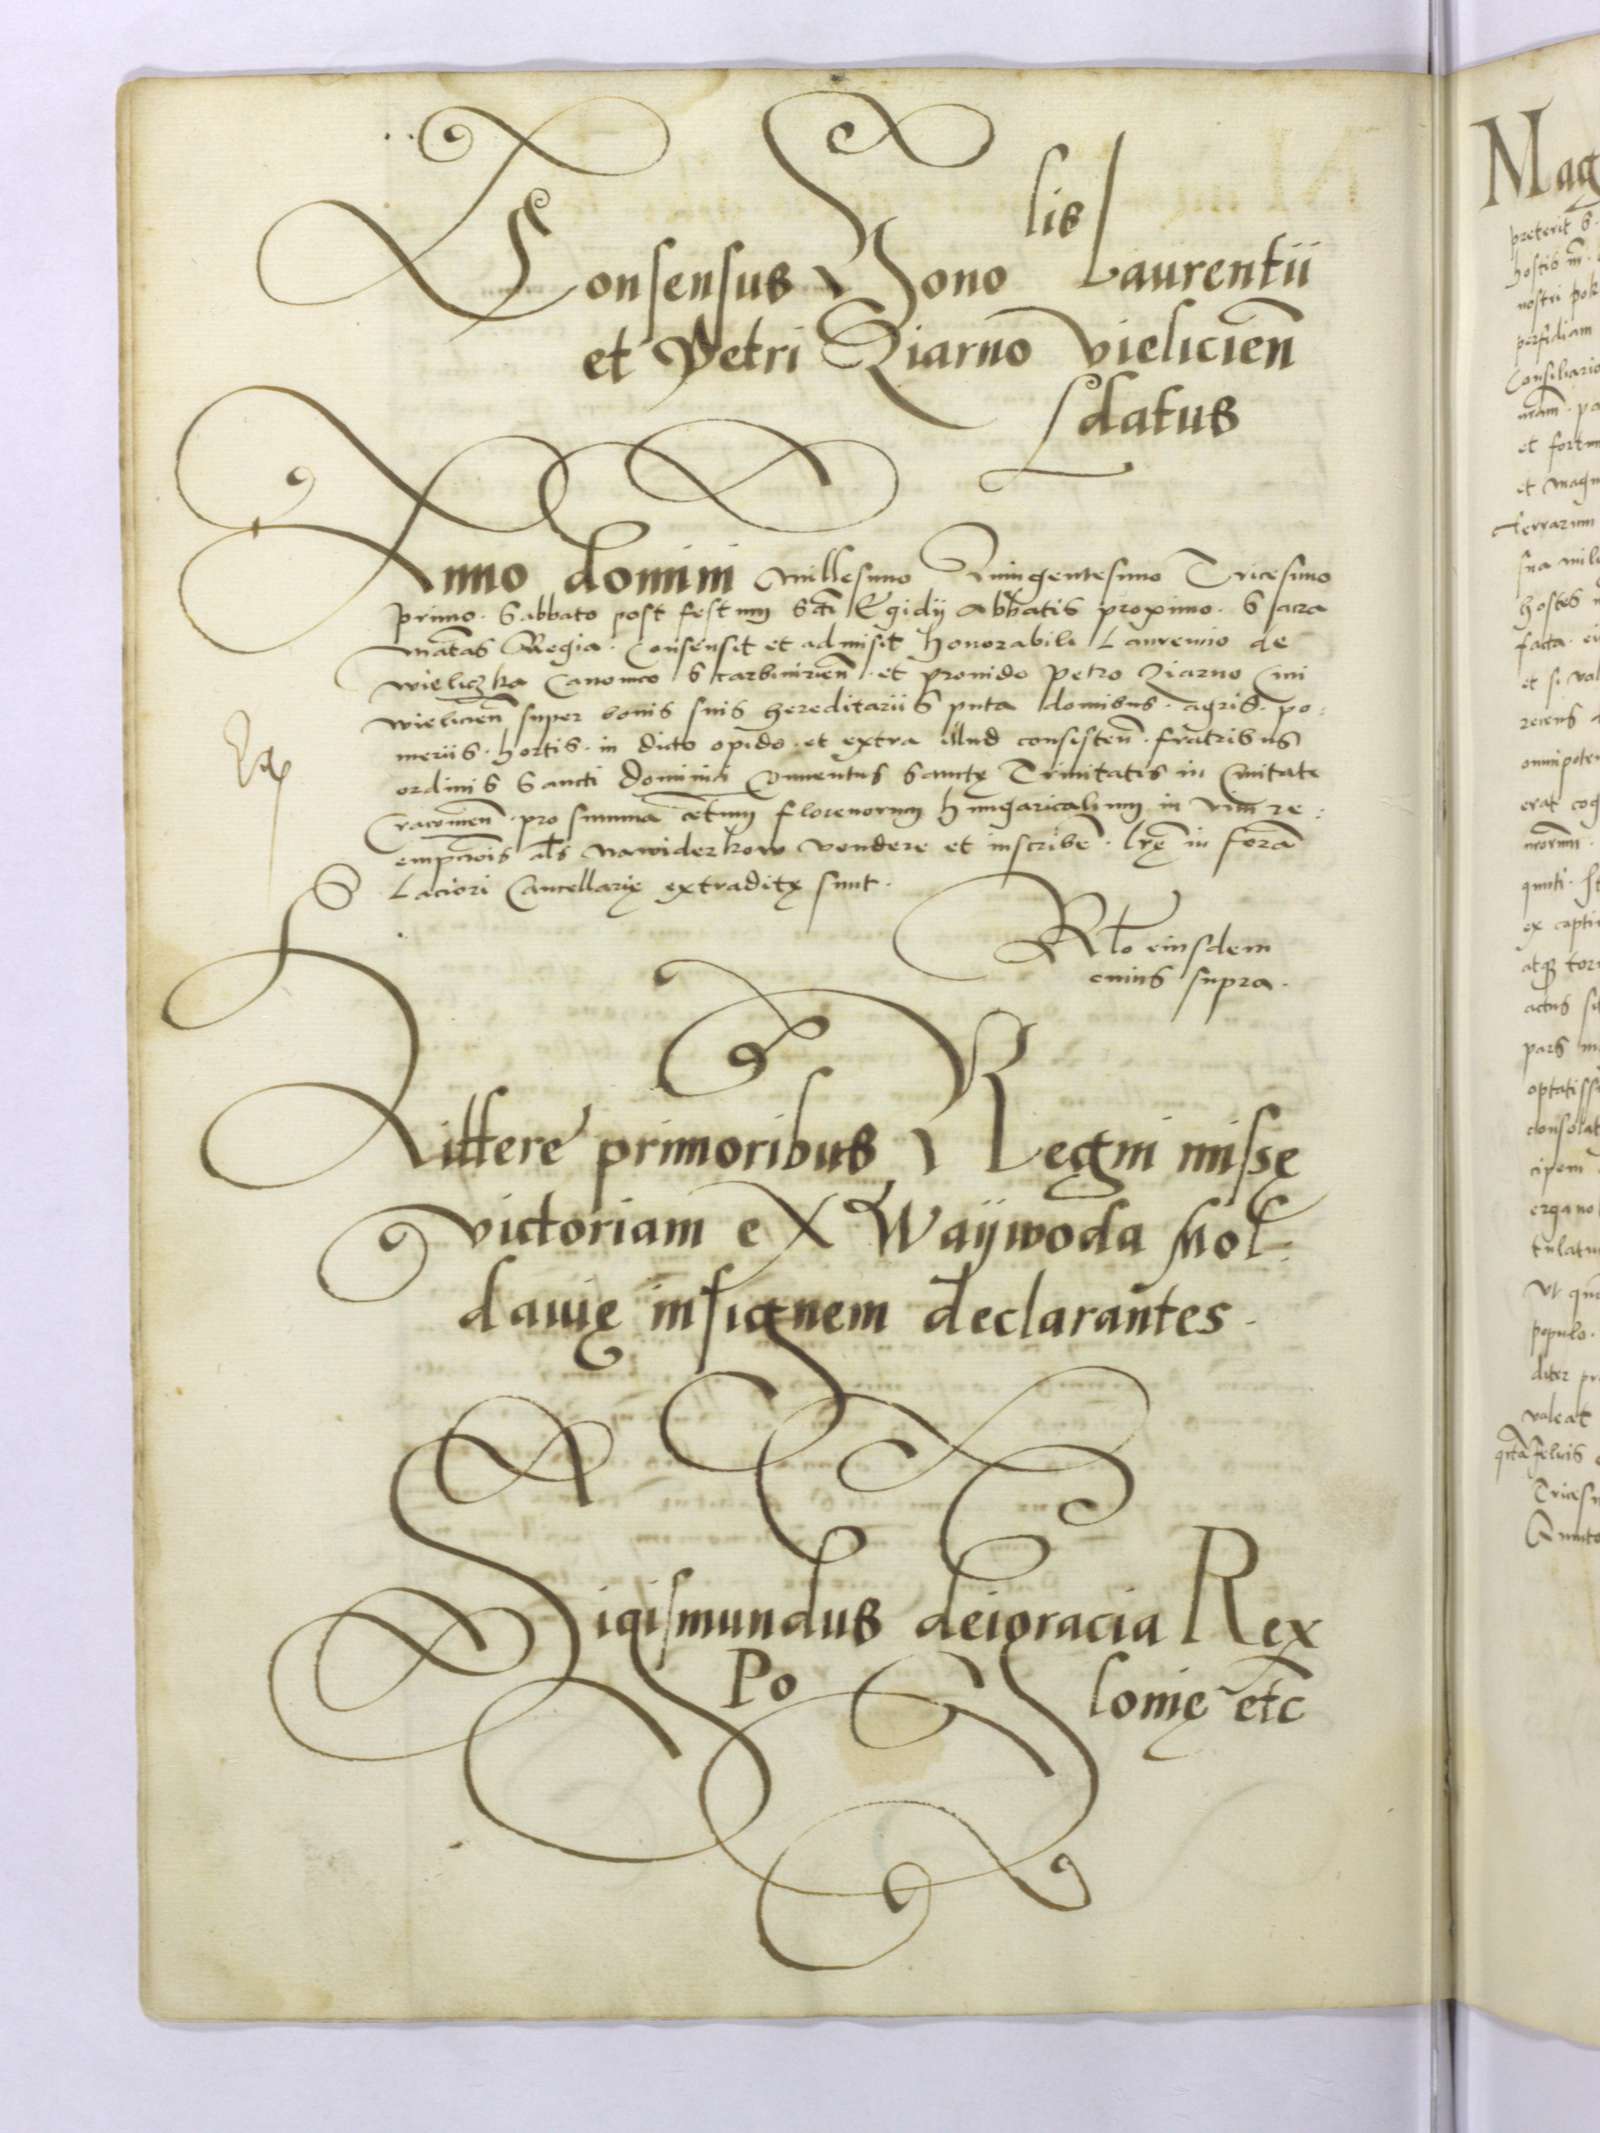 lis
Consensus Hono Laurentii
et Petri Ziarno Vielicien̄
datus
Anno domini Millesimo Quingentesimo Tricesimo
primo. Sabbato post festum Scti Egidij Abbatis proximo. Sacra
Mātas Regia. Consensit et admisit honorabili Laurencio de
Wieliczka Canonico Scarbimirien̄. et provido Petro Ziarno Civi
Wielicien̄ super bonis suis hereditariis puta domibus. agris. po:
meriis. hortis. in dicto opido. et extra illud consisten̄. fratribus
ordinis Sancti Dominici Conventus Sanctę Trinitatis in Civitate
Cracovien̄. pro summa centum florenorum hungaricalium in vim re:
empcōis als Nawiderkow vendere et inscribē. Lrę in forā
Laciori Cancellarię extraditę sunt.
Rlō eiusdem
cuius supra.
Littere primoribus Regni missę
victoriam ex Waijwoda Mol:
davię insignem declarantes.
Sigismundus dei gracia Rex
Po lonię etc
Mag
preterit
nostri
perfidiam
Consiliario
et
et magn
terrarum
sua
hostes
facta.
et si val
omnipoten
erat cog
ex capti
atq3
actus
pars
optatiss
consolat
cipem
populo.
valeat